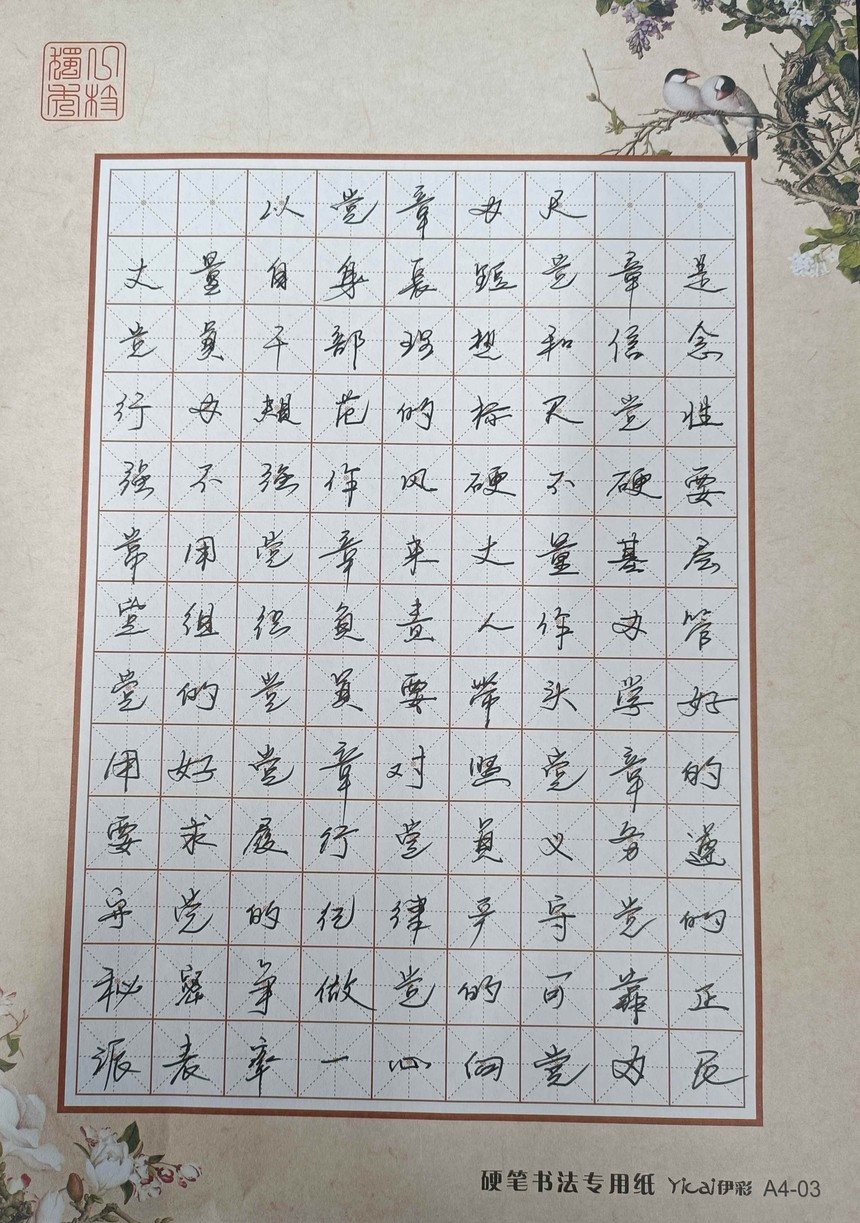 以党章为尺
丈量自身长短党章是
党员干部理想和信念
行为规范的标尺党性
强不强作风硬不硬要
常用党章来丈量基层
党组织负责人作为管
党的党员要带头学好
用好党章对照党章的
要求履行党员义务遵
守党的纪律严守党的
秘密争做党的可靠正
派表率一心向党为民
硬笔书法专用纸 Yicai伊彩 A4-03